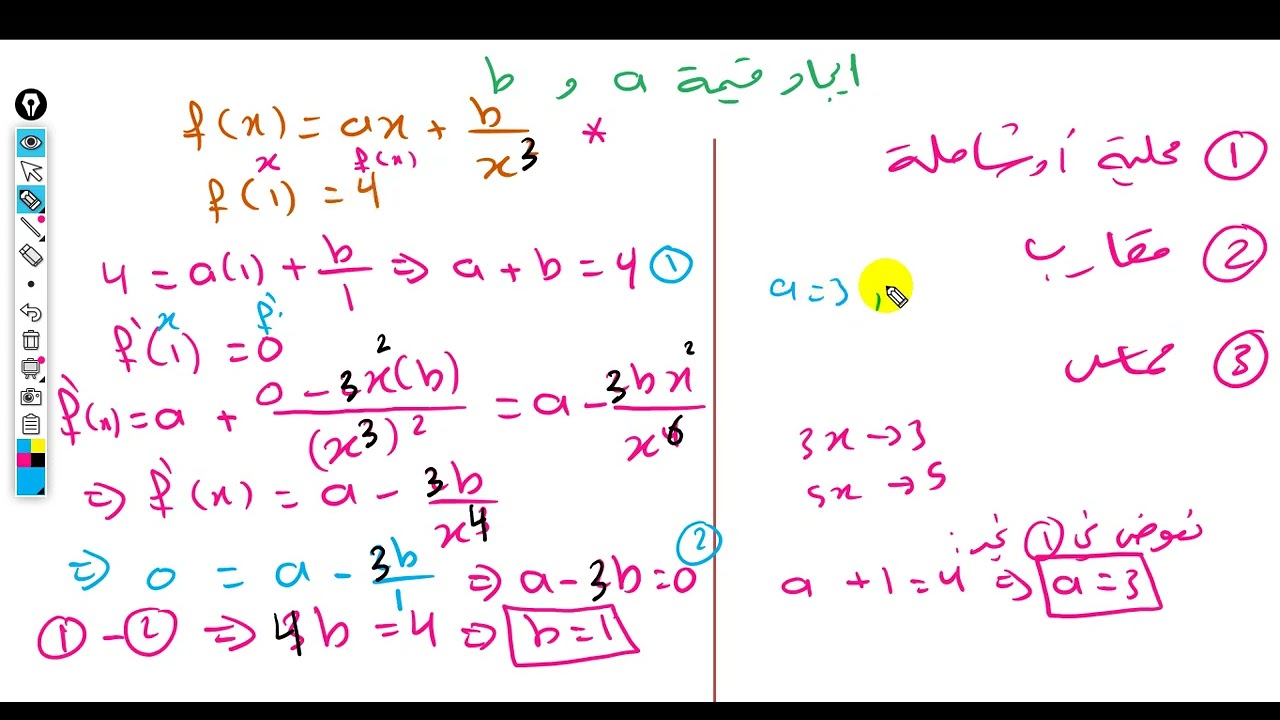 ايجاد قيمة a و b
f(x) = ax + b/x³ *
x f(x)
f(1) = 4
4 = a(1) + b/1 ⇒ a + b = 4 ①
x f`
f`(1) = 0
f`(x) = a + (0 - 3x²(b))/(x³)² = a - 3bx²/x⁶
⇒ f`(x) = a - 3b/x⁴
⇒ 0 = a - 3b/1 ⇒ a - 3b = 0 ②
① - ② ⇒ 4b = 4 ⇒ b = 1
① محلية أو شاملة
② مقارب
a = 3 ,
③ مماس
3x → 3
5x → 5
نعوض في ① نجد :
a + 1 = 4 ⇒ a = 3